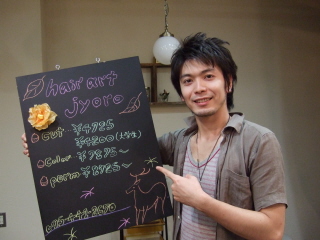 hair art
jyoro
cut ¥4725
¥4200 (大学生)
color ¥7875~
perm ¥8925~